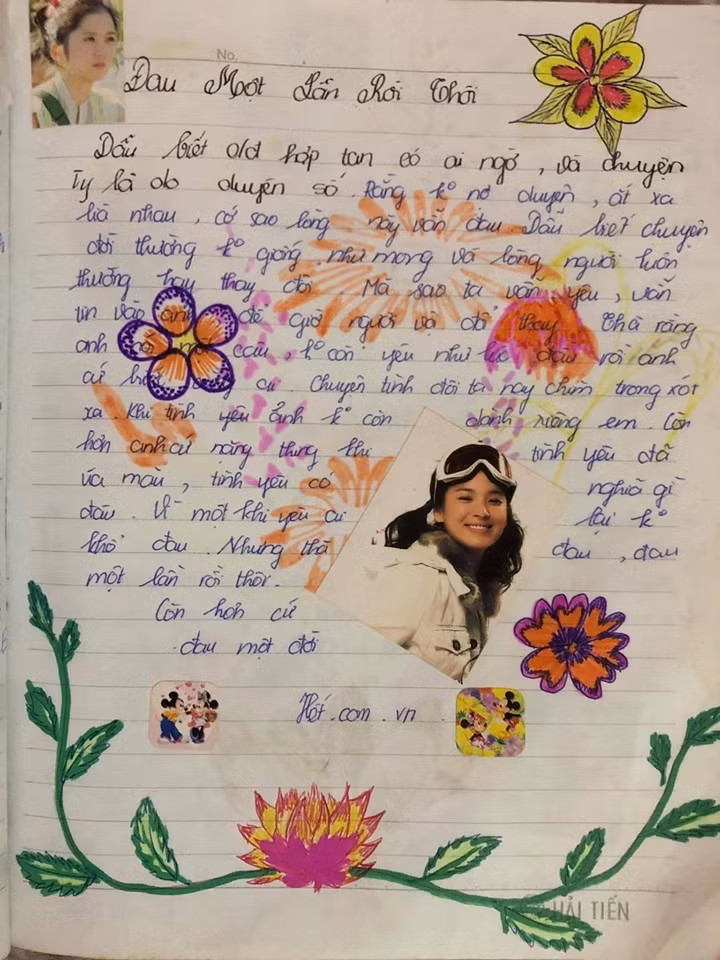 No.
Đau Một Lần Rồi Thôi
Dẫu biết old hớp tan có ai ngờ, và chuyện
Ty là do duyên số. Rằng ko nợ duyên, ắt xa
lìa nhau, cớ sao lòng này vẫn đau. Dẫu biết chuyện
đời thường ko giống như mong và lòng người luôn
thường hay thay đổi. Mà sao ta vẫn yêu, vẫn
tin vào anh để giờ người vội đổi thay. Thà rằng
anh nói một câu, ko còn yêu như lúc đầu rồi anh
cứ cu. Chuyện tình đôi ta nay chìm trong xót
xa. Khi tình yêu ảnh ko còn dành riêng em. Còn
hơn anh cứ nặng thung khi tình yêu đã
úa màu, tình yêu có nghĩa gì
đâu. Vì một khi yêu ai lại ko
khổ đau. Nhưng thà đau, đau
một lần rồi thôi.
Còn hơn cứ
đau một đời
Hết.com.vn.
HẢI TIẾN